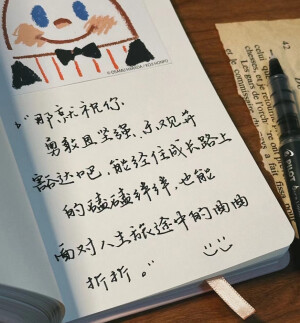 “那就祝你.
勇敢且坚强，乐观并
豁达吧，能经住成长路上
的磕磕绊绊，也能
面对人生旅途中的曲曲
折折。”
celui que
cheses, et
42